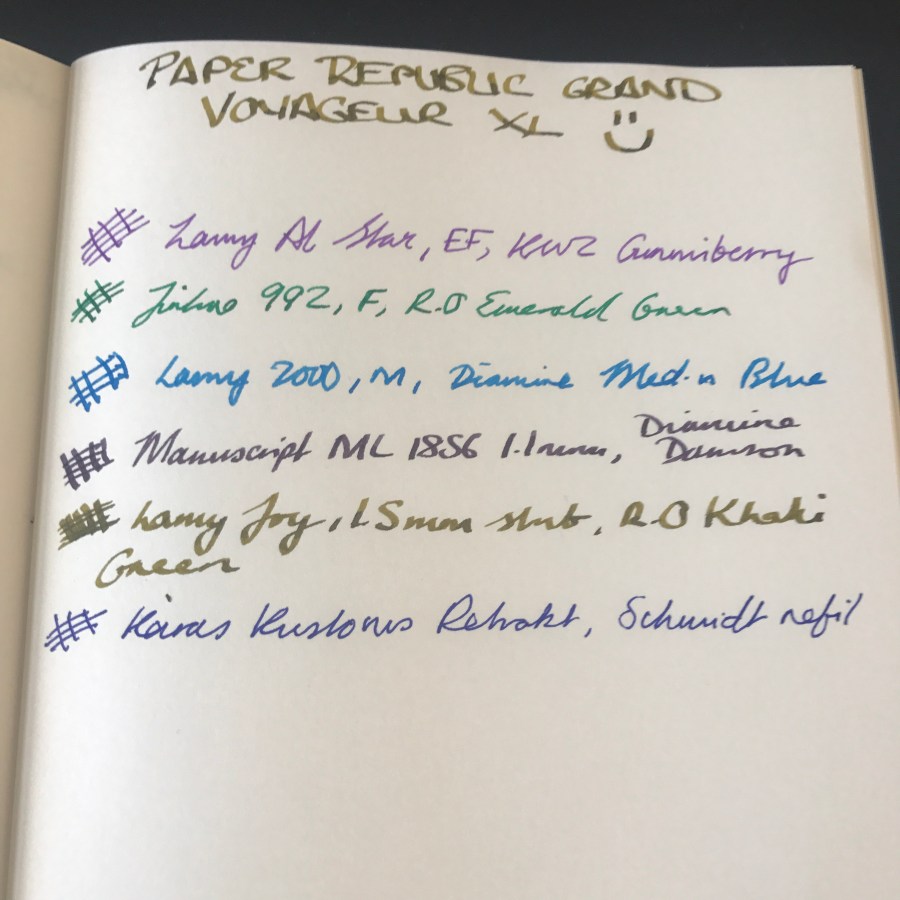 PAPER REPUBLIC GRAND
VOYAGEUR XL
Lamy Al Star, EF, KWZ Gummiberry
Jinhao 992, F, R.O Emerald Green
Lamy 2000, M, Diamine Med.n Blue
Manuscript ML 1856 1.1mm, Diamine
Damson
Lamy Joy, 1.5mm stub, R.O Khaki
Green
Karas Kustoms Retrakt, Schmidt refil